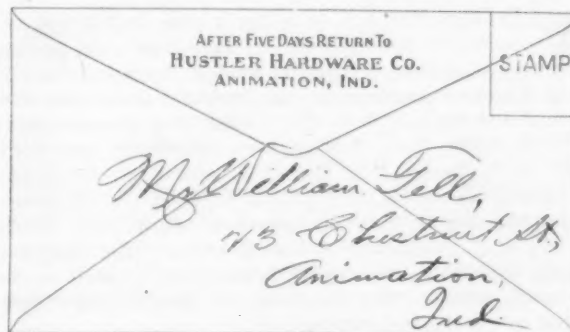 AFTER FIVE DAYS RETURN TO
HUSTLER HARDWARE CO.
ANIMATION, IND.
STAMP
Mr William Tell,
23 Chestnut St,
Animation,
Ind.